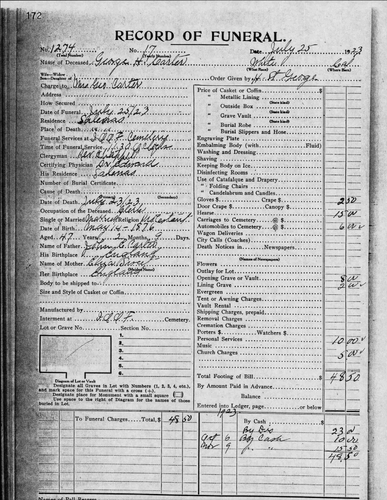 172
RECORD OF FUNERAL.
No. 1274 17 Date July 25 1923
(Total Number) (Yearly Number)
Name of Deceased George H. Carter White Cal
(What Race) (Where Born)
Charge to Mrs. Geo. Carter Order Given by
Address
How Secured
Date of Funeral July 25/23
Residence Salinas
Place of Death
Funeral Services at I.O.O.F. Cemetery
Time of Funeral Service
Clergyman Rev.
Certifying Physician Dr. Edward
His Residence Salinas
Number of Burial Certificate
Cause of Death
Date of Death July 23/23
Occupation of the Deceased Clerk
Single or Married Married Religion Protestant
Date of Birth May 14 - 1876
Aged 47 Years 2 Months 9 Days
Name of Father Carter
His Birthplace England
Name of Mother
Her Birthplace England
Body to be shipped to
Size and Style of Casket or Coffin
Manufactured by
Interment at I.O.O.F. Cemetery.
Lot or Grave No. Section No.
1.
2.
3.
4.
5.
6.
Diagram of Lot or Vault
Designate all Graves in Lot with Numbers (1, 2, 3, 4, etc.), and mark space for this Funeral with a cross (+).
Designate place for Monument with a small square
Use space to the right of Diagram for names of those buried in Lot.
Price of Casket or Coffin
" Metallic Lining
(State kind)
" Outside Box
(State kind)
" Grave Vault
(State kind)
" Burial Robe
(State kind)
" Burial Slippers and Hose
Engraving Plate
Embalming Body (with Fluid)
Washing and Dressing
Shaving
Keeping Body on Ice
Disinfecting Rooms
Use of Catafalque and Drapery
" Folding Chairs
" Candelabrum and Candles
Gloves $ Crape $ 2 50
Door Crape $ Canopy $
Hearse 15 00
Carriages to Cemetery @ $
Automobiles to Cemetery @ $ 6 00
Wagon Deliveries
City Calls (Coaches)
Death Notices in Newspapers
(Names of Newspapers)
Flowers
Outlay for Lot
Opening Grave or Vault 8 00
Lining Grave 2 00
Evergreen
Tent or Awning Charges
Vault Rental
Shipping Charges, prepaid
Removal Charges
Cremation Charges
Porters $ Watchers $
Personal Services 10 00
Music
Church Charges 5 00
Total Footing of Bill $ 48 50
By Amount Paid in Advance
Balance
Entered into Ledger, page or below.
To Funeral Charges Total, $ 48 50
1923 By Cash
By Dis 23 00
Oct 6 By Cash 10 00
Nov 9 " " 15 50
48 50